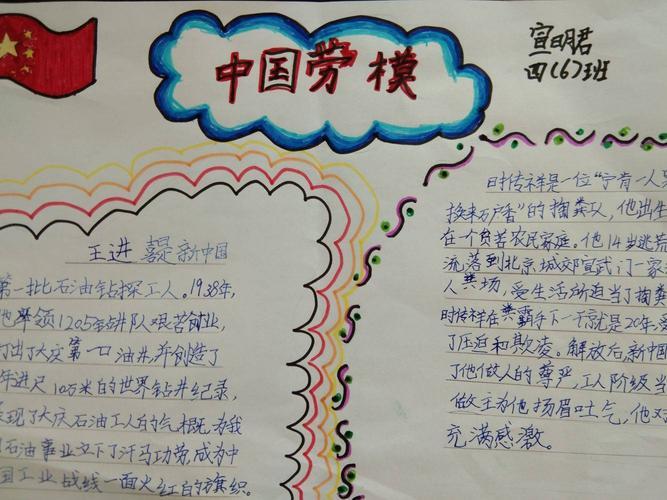 中国劳模
宣明君
四(6)班
王进喜是新中国
第一批石油钻探工人。1938年,
他率领1205钻井队艰苦创业,
打出了大庆第一口油井,并创造了
年进尺10万米的世界钻井纪录,
展现了大庆石油工人的气概,为我
国石油事业立下了汗马功劳,成为中
国工业战线一面火红的旗织。
时传祥是一位“宁肯一人
换来万户香”的掏粪工人,他出生
在一个贫苦农民家庭。他14岁逃荒
流落到北京城郊宣武门一家
人粪场,受生活所迫当了掏粪
时传祥在粪霸手下一干就是20年,
了压迫和欺凌。解放后,新中国
了他做人的尊严,工人阶级当
做主为他扬眉吐气,他对
充满感激。